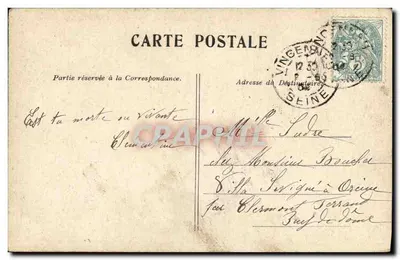 CARTE POSTALE
Partie réservée à la Correspondance.
Adresse du Destinataire
VINCENNES
12 35
SEINE
Est tu morte ou vivante
Clementine
Melle Sudre
chez Monsieur Boucher
Villa Sévigné à
par Clermont Ferrand
Puy de dôme